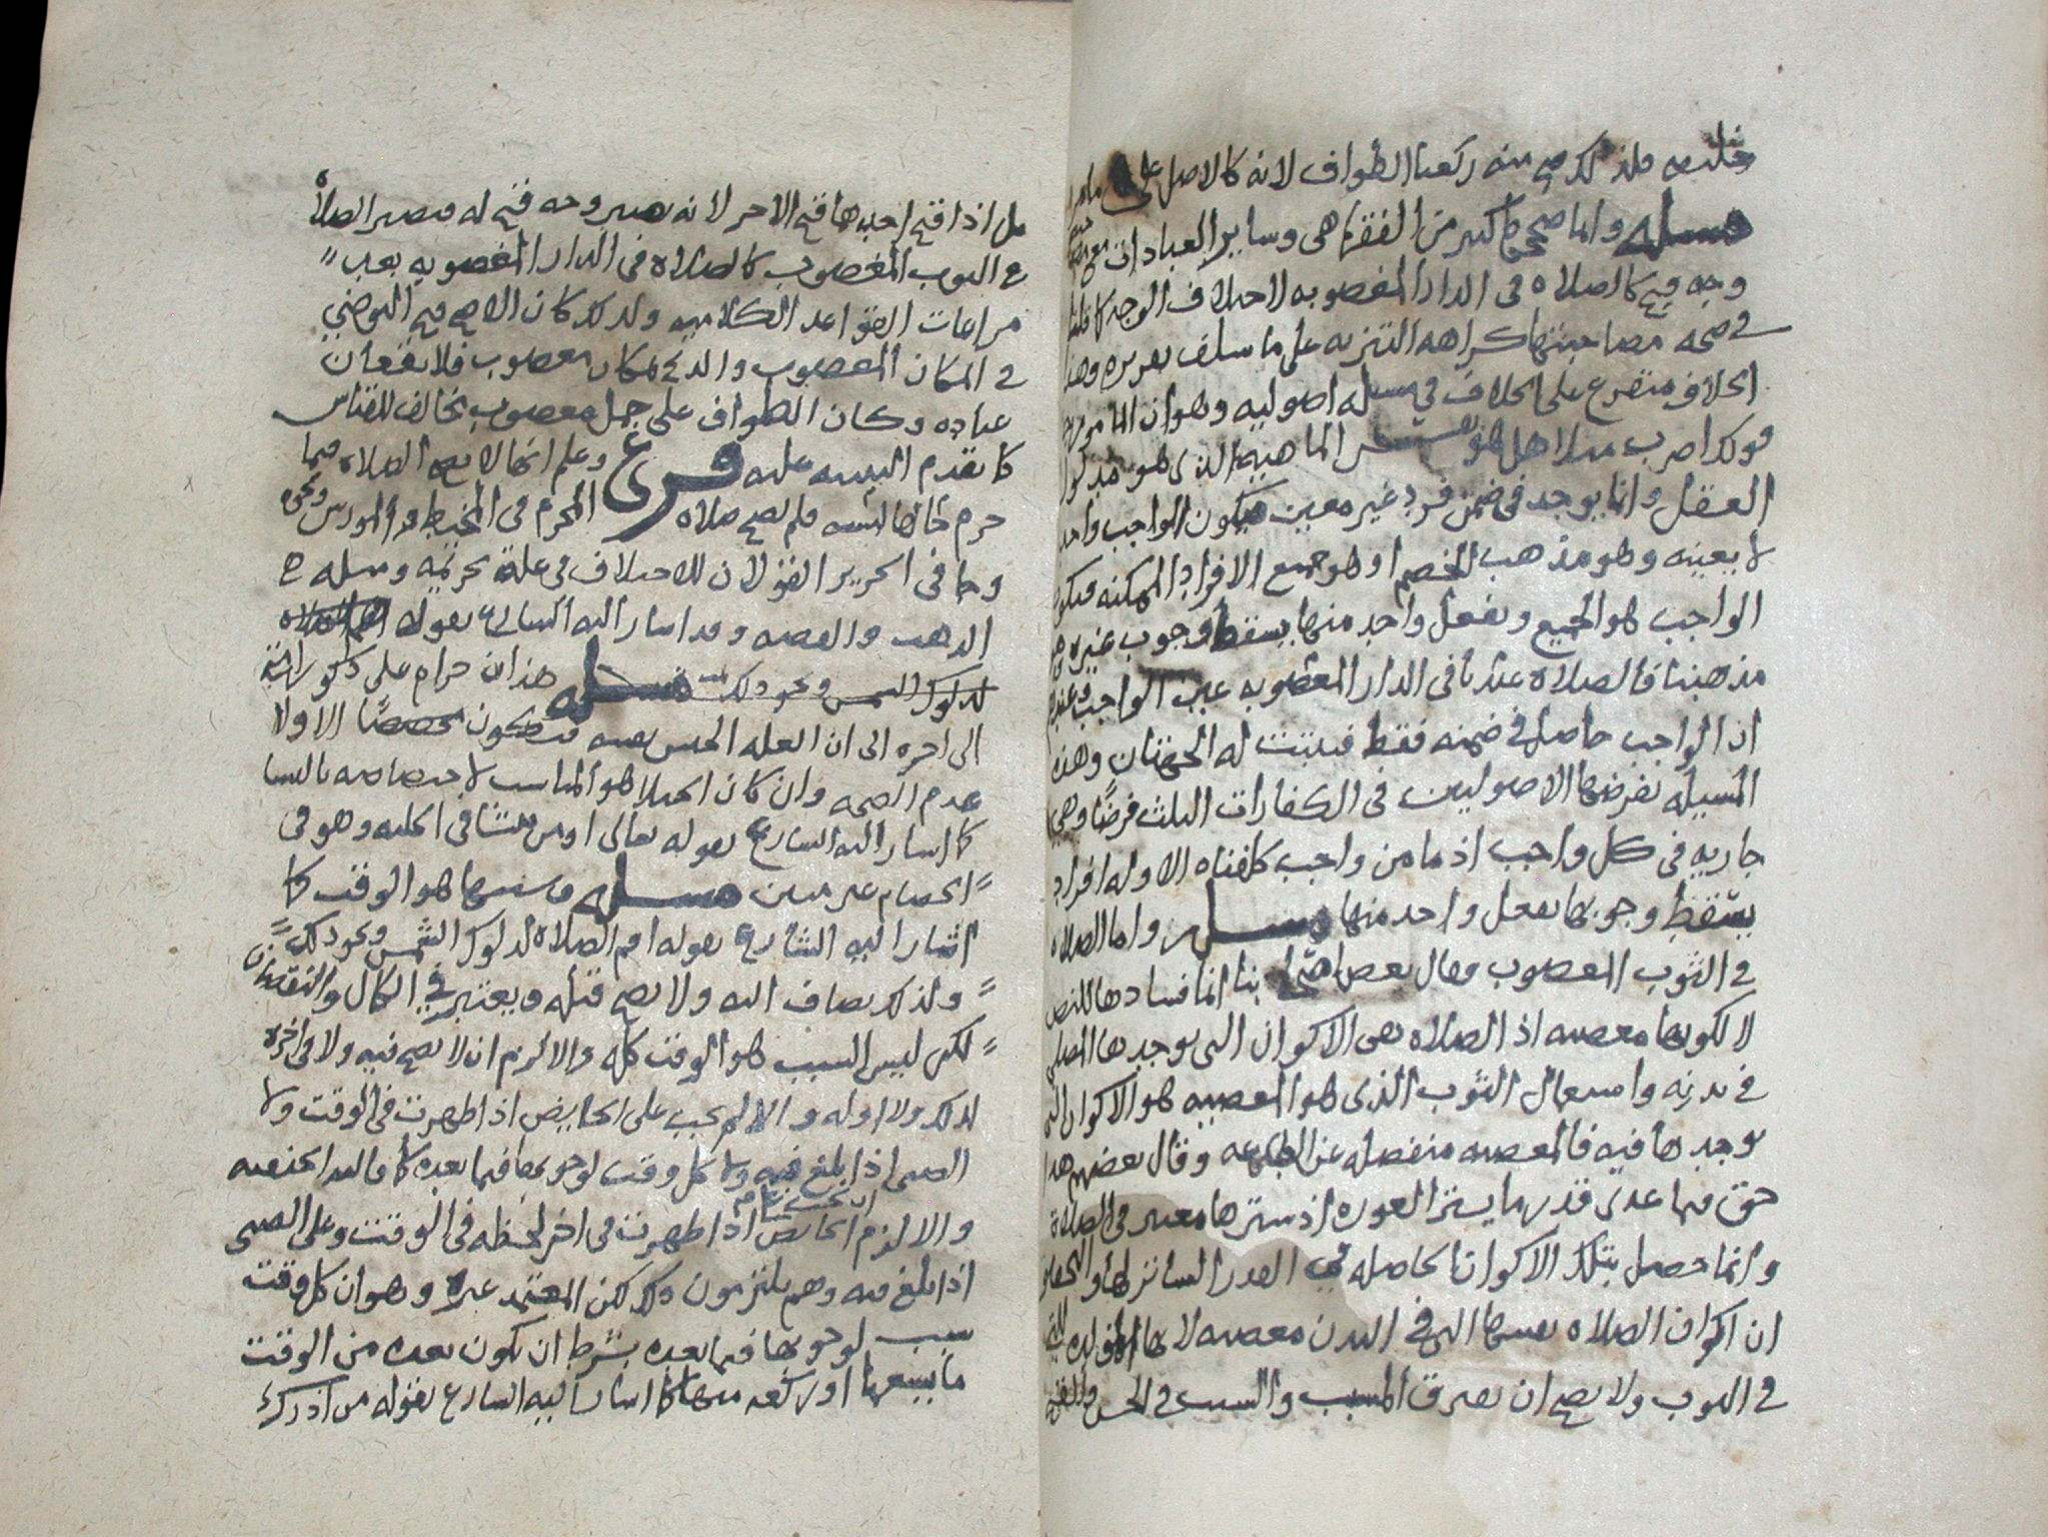 فلذلك صح منه ركعتا الطواف لانه كالاصل على
مسله وانما صححها كثير من الفقها هى وساير العبادات مع
وجه قبح كالصلاه فى الدار المغصوبه لاختلاف الوجه كما قلنا
فى صحه مصاحبتها كراهه التنزيه على ما سلف تقريره وهذا
الخلاف متفرع على الخلاف فى مسله اصوليه وهو ان المامور به
فى قولك اضرب مثلا هل هو نفس الماهيه الذى هو مدلول
العقل وانما يوجد فى ضمن فرد غير معين فيكون الواجب واحد
لا بعينه وهو مذهب الخصم او هو جميع الافراد الممكنه فيكون
الواجب هو الجميع وبفعل واحد منها يسقط وجوب غيره وهو
مذهبنا فالصلاه عندنا فى الدار المغصوبه عين الواجب وعندهم
ان الواجب حاصل فى ضمنه فقط فيثبت له الجهتان وهذه
المسيله يفرضها الاصوليين فى الكفارات الثلث فرضًا وهى
جاريه فى كل واجب اذ ما من واجب كلفناه الا وله افراد
يسقط وجوبها بفعل واحد منها مسله واما الصلاه
فى الثوب المغصوب فقال بعض اصحابنا انما فسادها للنص
لا لكونها معصيه اذ الصلاه هى الاكوان التى يوجدها المصلى
فى بدنه واستعمال الثوب الذى هو المعصيه هو الاكوان التى
يوجدها فيه فالمعصيه منفصله عن الطاعه وقال بعضهم هذا
حق فيما عدى قدر ما يستر العوره اذ سترها معتبر فى الصلاة
وانما حصل بتلك الاكوان الحاصله فى القدر الساتر لها والتحقيق
ان اكوان الصلاه نفسها التى فى البدن معصيه لانها المولده للتى
فى الثوب ولا يصح ان يفرق المسبب والسبب فى الحسن والقبح
بل اذا قبح احدهما قبح الاخر لانه يصير وجه قبح له فتصير الصلاة
فى الثوب المغصوب كالصلاه فى الدار المغصوبه بعد
مراعات القواعد الكلاميه ولذلك كان الاصح قبح التوضي
فى المكان المغصوب والذبح بمكان مغصوب فلا يقعان
عباده وكان الطواف على جمل مغصوب مخالف للقياس
كما تقدم التنبيه عليه فرع وعلم انها لا تصح الصلاه فيما
حرم كما لها لبسه فلم تصح صلاه المحرم فى المخيط والمورس ونحوه
وجا فى الحرير القولان للاختلاف فى علة تحريمه ومسله
الذهب والفضه وقد اشار اليه الشارع بقوله اقم الصلاه
لدلوك الشمس ونحو ذلك مسله هذان حرام على ذكور امتي
الى اخره الى ان العله الجنس نفسه فيكون مخصصًا الاولا
عدم الصحه وان كان الخيلا هو المناسب لاختصاصه بالنسا
كما اشار اليه الشارع بقوله تعالى اومن ينشا فى الحليه وهو فى
الخصام غير مبين مسله وسببها هو الوقت كما
اشار اليه الشارع بقوله اقم الصلاه لدلوك الشمس ونحو ذلك
ولذلك يضاف اليه ولا يصح قبله ويعتبر فى الكمال والنقصان
لكن ليس السبب هو الوقت كله والا لزم ان لا يصح فيه ولا فى اخره
لذلك ولا اوله والا لم يجب على الحايض اذا طهرت فى الوقت ولا
الصبى اذا بلغ فيه ولا كل وقت لوجوبها فيما بعده كما قالته الحنفيه
والا لزم الحايض اذا طهرت فى اخر لحظه فى الوقت وعلى الصبى
اذا بلغ فيه وهم يلتزمون ذلك لكن المعتمد غيره وهو ان كل وقت
سبب لوجوبها فيما بعده بشرط ان يكون بعده من الوقت
ما يسعها او ركعه منها كما اشار اليه الشارع بقوله من ادرك